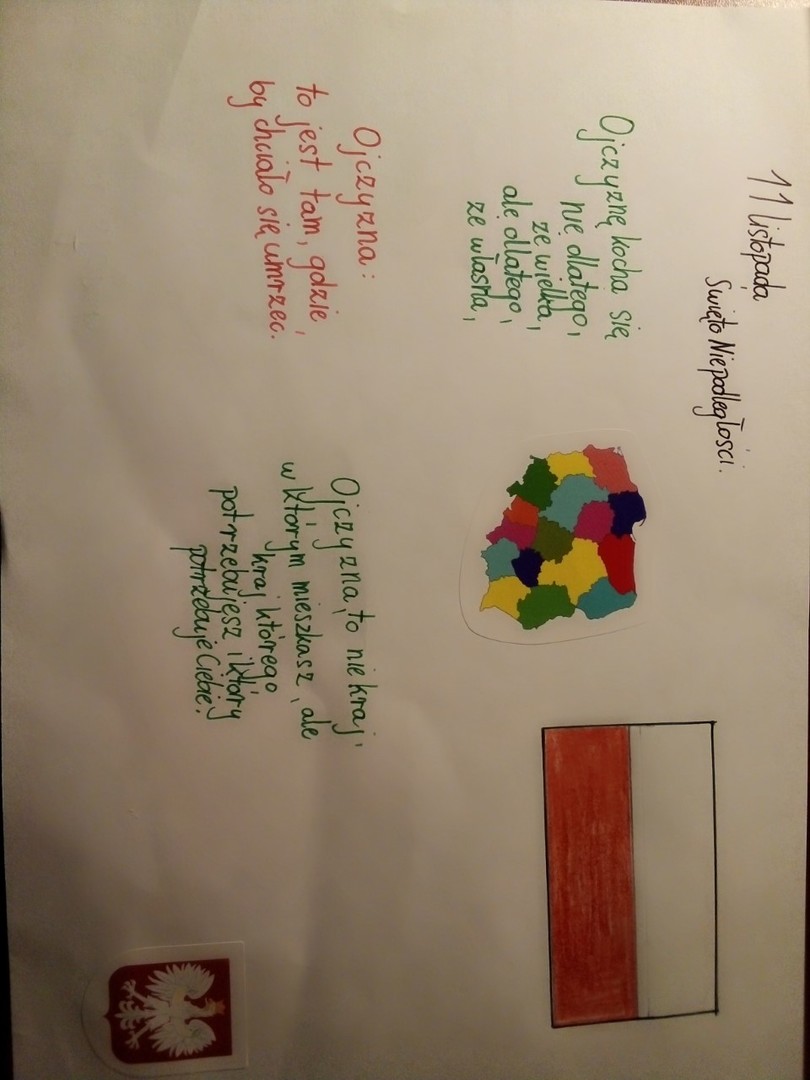 11 listopada
Święto Niepodległości.
Ojczyznę kocha się
nie dlatego,
że wielka,
ale dlatego,
że własna,
Ojczyzna:
to jest tam, gdzie
by chciało się umrzeć.
Ojczyzna, to nie kraj,
w którym mieszkasz, ale
kraj którego
potrzebujesz i który
potrzebuje Ciebie.